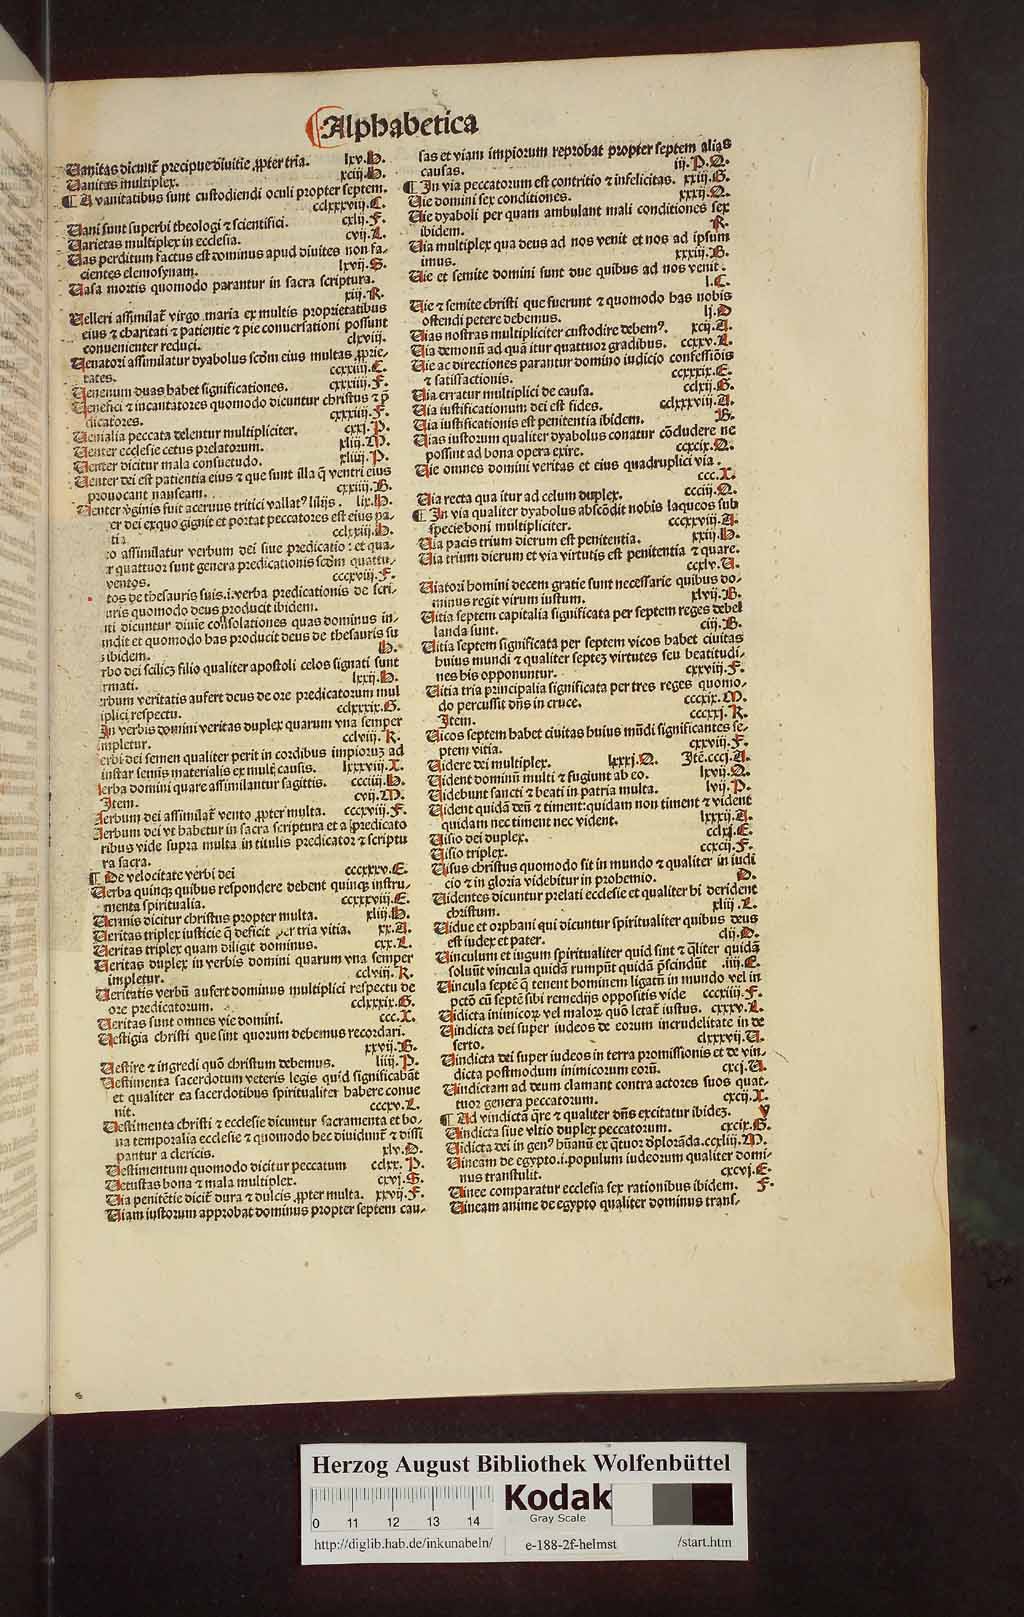 Alphabetica
Uanitas dicunt᷑ precipue diuitie ꝓpter tria. lxv.H.
Uanitas multiplex. xciij.H.
¶ A vanitatibus sunt custodiendi oculi propter septem.
cclxxxviij.C.
Uani sunt superbi theologi ⁊ scientifici. cxlij.F.
Uarietas multiplex in ecclesia. cvij.L.
Uas perditum factus est dominus apud diuites non fa-
cientes elemosynam. lxvij.S.
Uasa mortis quomodo parantur in sacra scriptura.
xiij.R.
Uelleri assimilat᷑ virgo maria ex multis proprietatibus
eius ⁊ charitati ⁊ patientie ⁊ pie conuersationi possunt
conuenienter reduci. clxviij.
Uenatori assimilatur dyabolus scdm eius multas ꝓprie-
tates. ccxxiiij.E.
Uenenum duas habet significationes. cxxxiiij.F.
Uenefici ⁊ incantatores quomodo dicuntur christus ⁊ p̄
dicatores. cxxxiiij.F.
Uenialia peccata delentur multipliciter. cxxj.P.
Uenter ecclesie cetus prelatorum. xliij.M.
Uenter dicitur mala consuetudo. xliiij.P.
Uenter dei est patientia eius ⁊ que sunt illa q̄ ventri eius
prouocant nauseam. cxxiiij.B.
Uenter v̓ginis fuit aceruus tritici vallatꝰ lilijs. lix.H.
er dei ex quo gignit et portat peccatores est eius pa-
tia cclxxiij.H.
to assimilatur verbum dei siue predicatio: et qua-
r quattuor sunt genera predicationis scdm quattu-
ventos. cccxviij.F.
tos de thesauris suis.i.verba predicationis de scri-
uris quomodo deus producit ibidem.
nti dicuntur diuie consolationes quas dominus in-
mdit et quomodo has producit deus de thesauris su
s ibidem. H.
rbo dei scilicꝫ filio qualiter apostoli celos signati sunt
rmati. lxxij.H.
rbum veritatis aufert deus de ore predicatorum mul
iplici respectu. cclxxxix.G.
In verbis domini veritas duplex quarum vna semper
impletur. cclviij.K.
erbi dei semen qualiter perit in cordibus impioruꝫ ad
instar semis materialis ex mult̕ causis. lxxxviij.X.
erba domini quare assimilantur sagittis. ccciiij.H.
Item. cvij.M.
erbum dei assimilat᷑ vento ꝓpter multa. cccxviij.F.
erbum dei vt habetur in sacra scriptura et a p̄dicato
ribus vide supra multa in titulis predicator ⁊ scriptu
ra sacra.
¶ De velocitate verbi dei cccxxxv.E.
Uerba quinqꝫ quibus respondere debent quinqꝫ instru-
menta spiritualia. ccxxxviij.E.
Uermis dicitur christus propter multa. xliij.H.
Ueritas triplex iusticie q̄ deficit per tria vitia. xx.A.
Ueritas triplex quam diligit dominus. cxx.L.
Ueritas duplex in verbis domini quarum vna semper
impletur. cclviij.K.
Ueritatis verbū aufert dominus multiplici respectu de
ore predicatorum. cclxxxix.G.
Ueritas sunt omnes vie domini. ccc.X.
Uestigia christi que sint quorum debemus recordari.
xxvij.B.
Uestire ⁊ ingredi quō christum debemus. liiij.P.
Uestimenta sacerdotum veteris legis quid significabāt
et qualiter ea sacerdotibus spiritualiter habere conue
nit. cccxv.L.
Uestimenta christi ⁊ ecclesie dicuntur sacramenta et bo-
na temporalia ecclesie ⁊ quomodo hec diuidunt᷑ ⁊ dissi
pantur a clericis. xlv.O.
Uestimentum quomodo dicitur peccatum cclxx.P.
Uetustas bona ⁊ mala multiplex. cxvj.S.
Uia penitētie dicit᷑ dura ⁊ dulcis ꝓpter multa. xxvij.F.
Uiam iustorum approbat dominus propter septem cau-
sas et viam impiorum reprobat propter septem alias
causas. iij.P.Q.
¶ In via peccatorum est contritio ⁊ infelicitas. xxiij.G.
Uie domini sex conditiones. xxxij.Q.
Uie dyaboli per quam ambulant mali conditiones sex
ibidem. R.
Uia multiplex qua deus ad nos venit et nos ad ipsum
imus. xxxiij.B.
Uie et semite domini sunt due quibus ad nos venit.
l.C.
Uie ⁊ semite christi que fuerunt ⁊ quomodo has nobis
ostendi petere debemus. lj.O
Uias nostras multipliciter custodire debemꝰ. xcij.A.
Uia demonū ad quā itur quattuor gradibus. ccxxv.L.
Uie ac directiones parantur domino iudicio confessiōis
⁊ satisfactionis. ccxxxix.E.
Uia erratur multiplici de causa. cclxij.G.
Uia iustificationum dei est fides. cclxxxviij.A.
Uia iustificationis est penitentia ibidem. B.
Uias iustorum qualiter dyabolus conatur cōcludere ne
possint ad bona opera exire. ccxcix.Q.
Uie omnes domini veritas et eius quadruplici via.
ccc.X.
Uia recta qua itur ad celum duplex. ccciij.Q.
¶ In via qualiter dyabolus abscōdit nobis laqueos sub
specie boni multipliciter. cccxxviij.A.
Uia pacis trium dierum est penitentia. xxiij.H.
Uia trium dierum et via virtutis est penitentia ⁊ quare.
ccxlv.U.
Uiatori homini decem gratie sunt necessarie quibus do-
minus regit virum iustum. xlvij.B.
Uitia septem capitalia significata per septem reges debel
landa sunt. ciij.B.
Uitia septem significata per septem vicos habet ciuitas
huius mundi ⁊ qualiter septeꝫ virtutes seu beatitudi-
nes his opponuntur. cxxviij.F.
Uitia tria principalia significata per tres reges quomo-
do percussit dn̄s in cruce. cccxix.M.
Item. ccccxj.K.
Uicos septem habet ciuitas huius mūdi significantes se-
ptem vitia. cxxviij.F.
Uidere dei multiplex. lxxxj.O. Itē.cccj.A.
Uident dominū multi ⁊ fugiunt ab eo. lxvij.Q.
Uidebunt sancti ⁊ beati in patria multa. lvij.P.
Uident quidā deū ⁊ timent: quidam non timent ⁊ vident
quidam nec timent nec vident. lxxxij.A.
Uisio dei duplex. cclxj.E.
Uisio triplex. ccxcij.F.
Uisus christus quomodo sit in mundo ⁊ qualiter in iudi
cio ⁊ in gloria videbitur in prohemio. D.
Uidentes dicuntur prelati ecclesie et qualiter hi derident
christum. xliij.L.
Uidue et orphani qui dicuntur spiritualiter quibus deus
est iudex et pater. clij.O.
Uinculum et iugum spiritualiter quid sint ⁊ q̄liter quidā
soluūt vincula quidā rumpūt quidā p̄scindūt .iiij.E.
Uincula septē q̄ tenent hominem ligatū in mundo vel in
pctō cū septē sibi remedijs oppositis vide cccxiiij.F.
Uidicta inimicoꝝ vel maloꝝ quō letat᷑ iustus. cxxxv.L.
Uindicta dei super iudeos de eorum incrudelitate in de
serto. clxxxvij.U.
Uindicta dei super iudeos in terra promissionis et de vin-
dicta postmodum inimicorum eorū. cxcj.U.
Uindictam ad deum clamant contra actores suos quat-
tuor genera peccatorum. cxcij.X.
¶ Ad vindictā q̄re ⁊ qualiter dn̄s excitatur ibideꝫ. V
Uindicta siue vltio duplex peccatorum. cxcix.G.
Uidicta dei in genꝰ hūanū ex q̄tuor d̓plorāda.ccxliij.M.
Uineam de egypto.i.populum iudeorum qualiter domi-
nus transtulit. cxcvj.E.
Uinee comparatur ecclesia sex rationibus ibidem. F.
Uineam anime de egypto qualiter dominus trans-
Herzog August Bibliothek Wolfenbüttel
0 11 12 13 14
Kodak
Gray Scale
http://diglib.hab.de/inkunabeln/ e-188-2f-helmst /start.htm